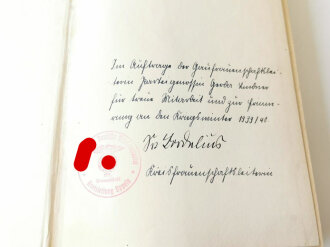 Im Auftrage der Gaufrauenschaftslei-
terin Parteigenossin Gerda
für treue Mitarbeit und zur Erinne-
rung an den Kriegswinter 1939/40.
Kreisfrauenschaftsleiterin